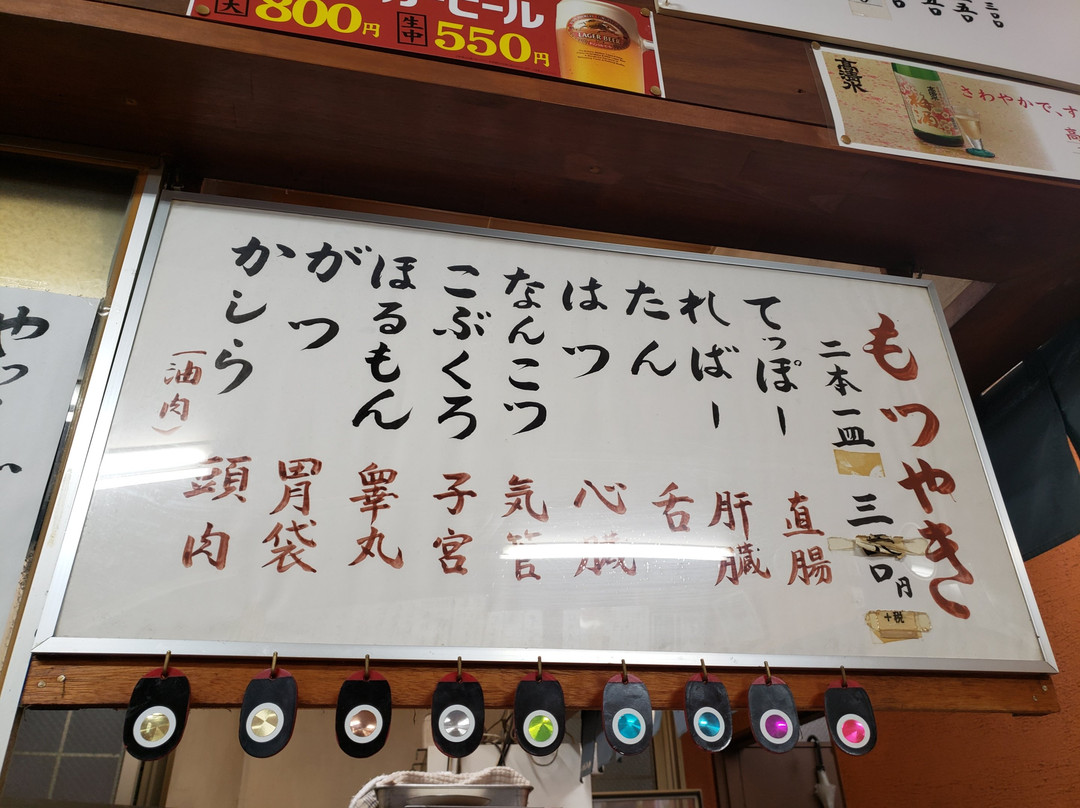 ビール
大 800円 生中 550円
LAGER BEER
高清水
梅酒
さわやかで、す
高
もつやき
二本一皿
円
+税
てっぽー 直腸
ればー 肝臓
たん 舌
はつ 心臓
なんこつ 気管
こぶくろ 子宮
ほるもん 睾丸
がつ 胃袋
かしら 頭肉
(油肉)
やっ